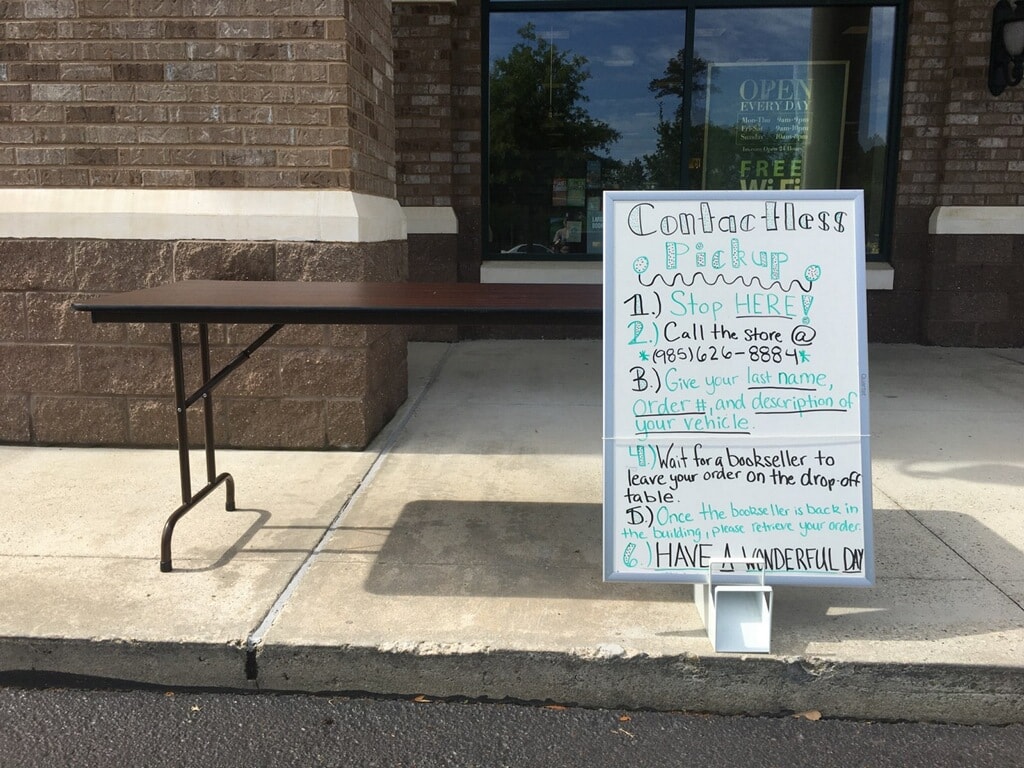 OPEN
EVERY DAY
Mon-Thu 9am-9pm
Fri-Sat 9am-10pm
Sunday 10am-8pm
FREE
WiFi
Contactless
Pickup
1.) Stop HERE!
2.) Call the store @
*(985)626-8884*
3.) Give your last name,
order #, and description of
your vehicle.
4.) Wait for a bookseller to
leave your order on the drop-off
table.
5.) Once the bookseller is back in
the building, please retrieve your order.
6.) HAVE A WONDERFUL DAY